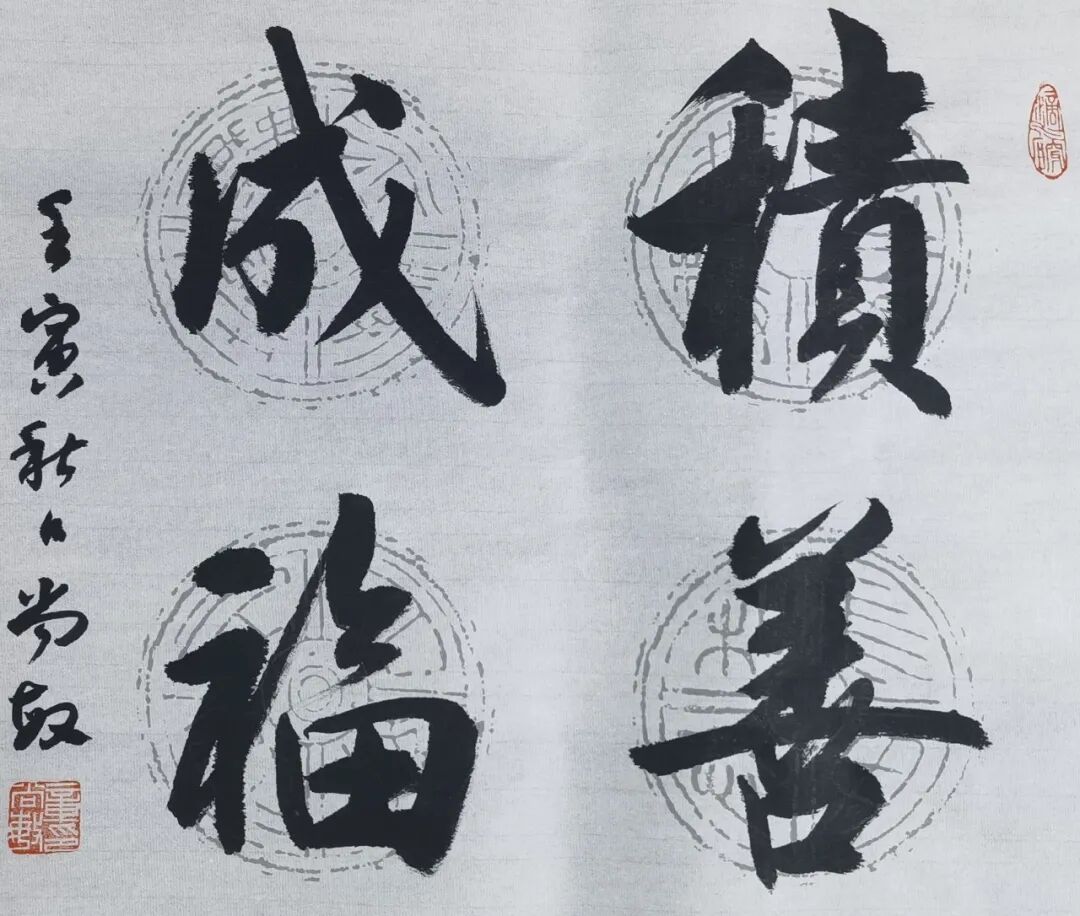 積善
成福
壬寅秋日尚敏